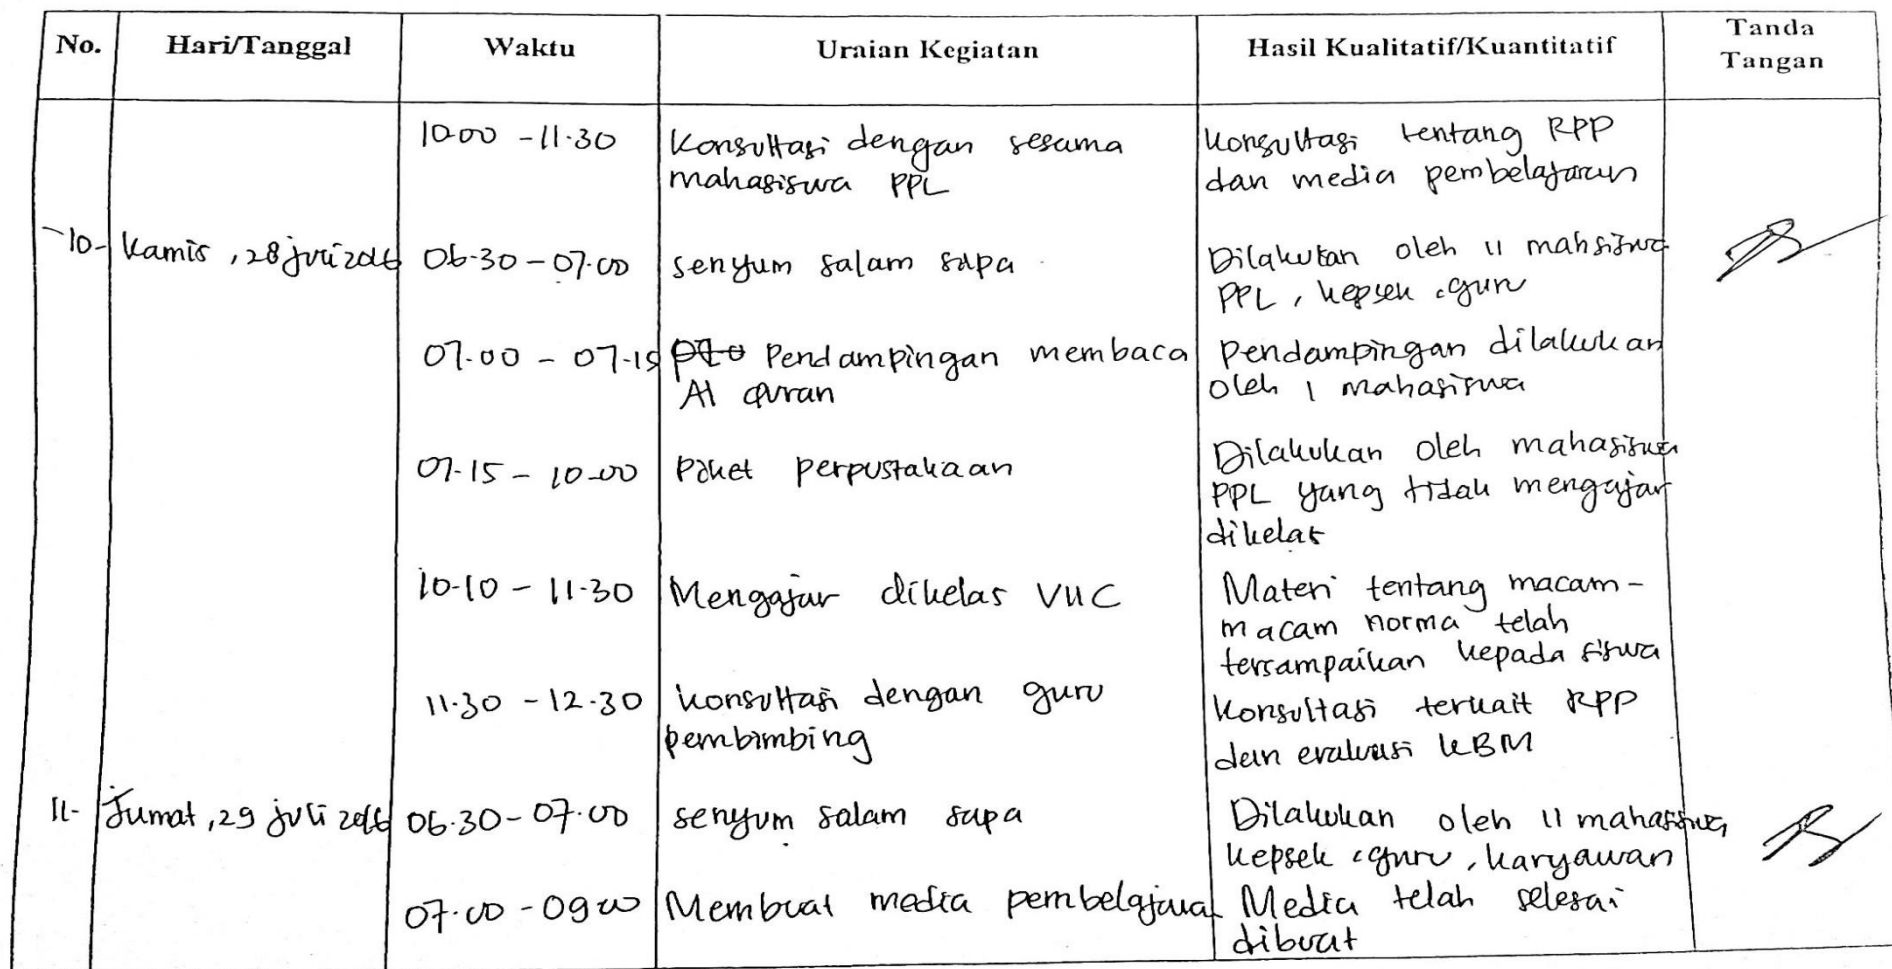 No. Hari/Tanggal Waktu Uraian Kegiatan Hasil Kualitatif/Kuantitatif Tanda Tangan
10.00 - 11.30 Konsultasi dengan sesama Konsultasi tentang RPP
mahasiswa PPL dan media pembelajaran
10. Kamis, 28 juli 2016 06.30 - 07.00 senyum salam sapa Dilakukan oleh 11 mahsiswa
PPL, kepsek, guru
07.00 - 07.15 Pendampingan membaca Pendampingan dilakukan
Al Quran oleh 1 mahasiswa
07.15 - 10.00 Piket perpustakaan Dilakukan oleh mahasiswa
PPL yang tidak mengajar
dikelas
10.10 - 11.30 Mengajar dikelas VIIC Materi tentang macam-
macam norma telah
tersampaikan kepada siswa
11.30 - 12.30 Konsultasi dengan guru Konsultasi terkait RPP
pembimbing dan evaluasi KBM
11. Jumat, 29 juli 2016 06.30 - 07.00 senyum salam sapa Dilakukan oleh 11 mahasiswa,
kepsek, guru, karyawan
07.00 - 09.00 Membuat media pembelajaran Media telah selesai
dibuat